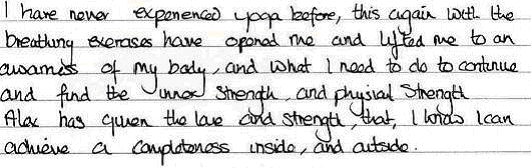 I have never experienced yoga before, this again with the
breathing exercises have opened me and lifted me to an
awarness of my body, and what I need to do to continue
and find the inner strength, and physical strength
Alex has given the love and strength, that, I know I can
achieve a completeness inside, and outside.